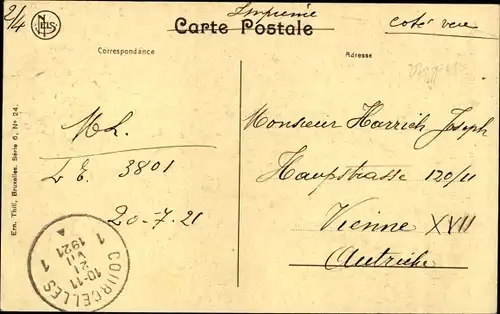 2/4
NELS
Imprimé
Carte Postale
coté vue
Correspondance
Adresse
ML.
L E. 3801
20-7-21
Monsieur Harrich Joseph
Haupstrasse 120/11
Vienne XVII
Autriche
Ern. Thill, Bruxelles. Série 6, No 24.
COURCELLES 1
10-11
21
VII
1921
1